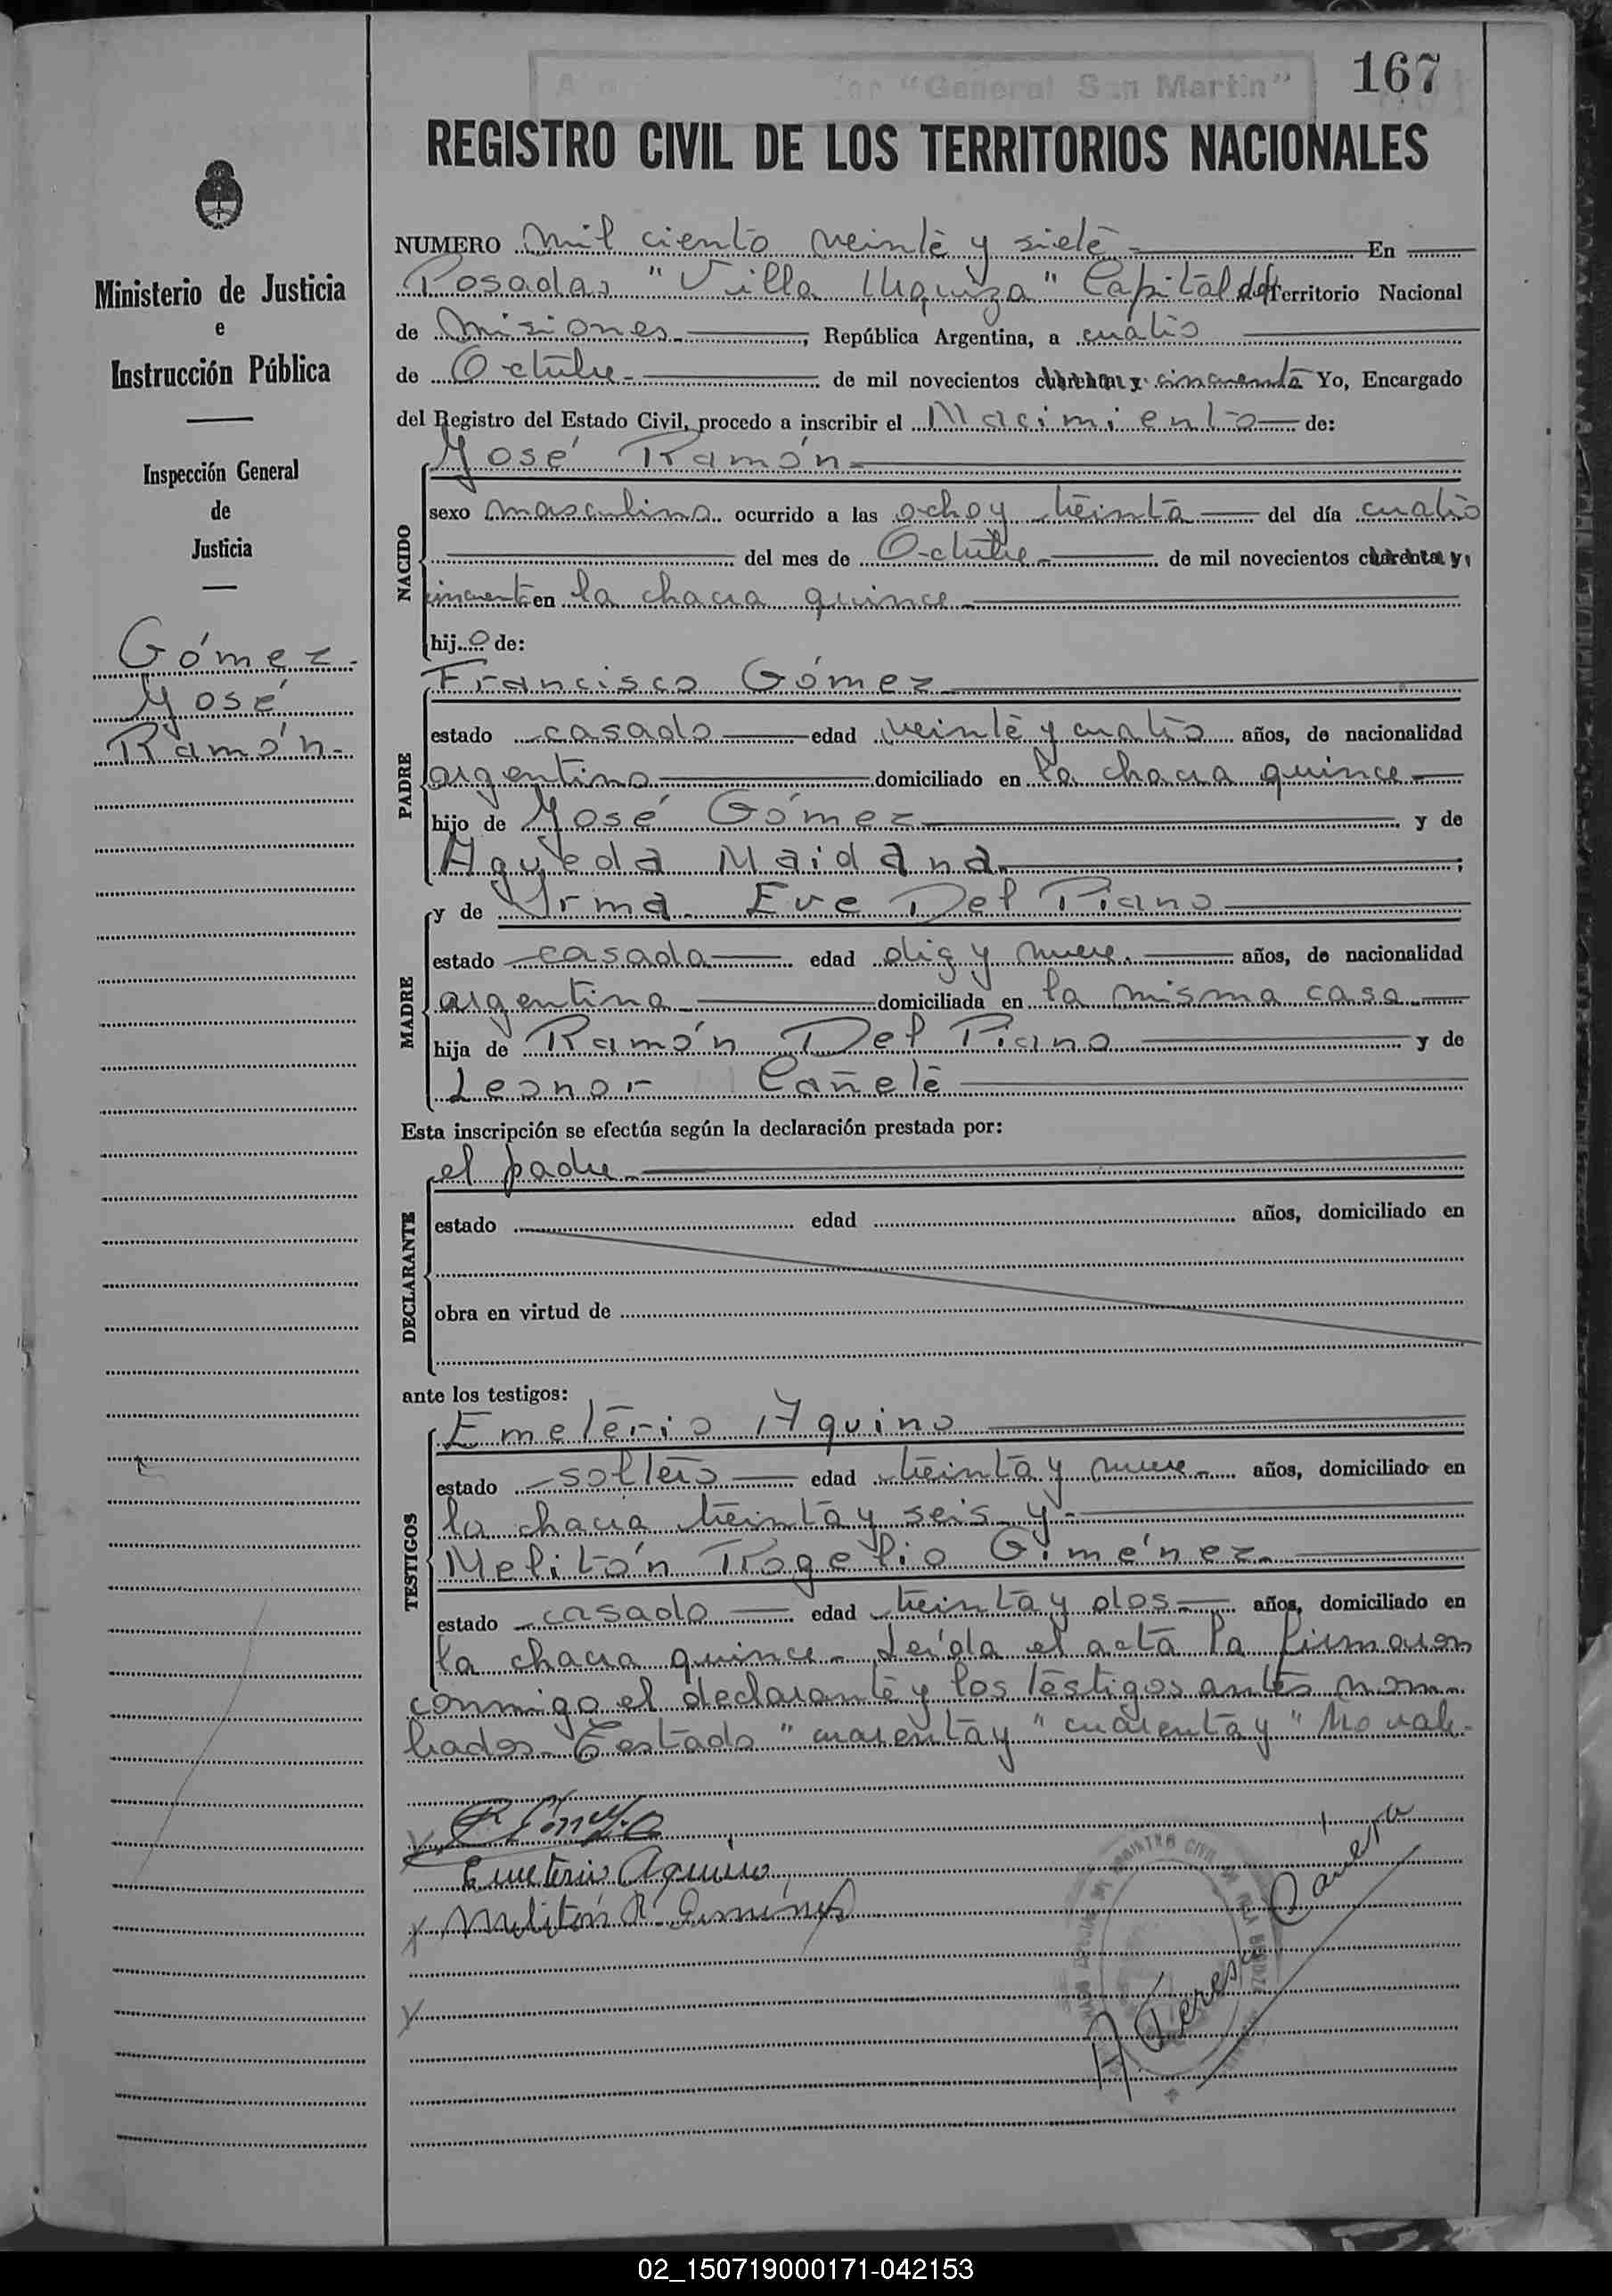 167
"General San Martín"
REGISTRO CIVIL DE LOS TERRITORIOS NACIONALES
Ministerio de Justicia
e
Instrucción Pública
Inspección General
de
Justicia
Gómez
José
Ramón
NUMERO mil ciento veinte y siete En
Posadas "Villa Urquiza" Capital del Territorio Nacional
de Misiones, República Argentina, a cuatro
de Octubre de mil novecientos cuarenta y cincuenta Yo, Encargado
del Registro del Estado Civil, procedo a inscribir el Nacimiento de:
NACIDO
José Ramón
sexo masculino ocurrido a las ocho y treinta del día cuatro
del mes de Octubre de mil novecientos cuarenta y
cincuenta en la chacra quince
hijo de:
PADRE
Francisco Gómez
estado casado edad veinte y cuatro años, de nacionalidad
argentino domiciliado en la chacra quince
hijo de José Gómez y de
Agueda Maidana;
MADRE
y de Irma Eve Del Piano
estado casada edad diez y nueve años, de nacionalidad
argentina domiciliada en la misma casa
hija de Ramón Del Piano y de
Leonor Cañete
Esta inscripción se efectúa según la declaración prestada por:
DECLARANTE
el padre
estado edad años, domiciliado en
obra en virtud de
ante los testigos:
TESTIGOS
Emeterio Aquino
estado soltero edad treinta y nueve años, domiciliado en
la chacra treinta y seis y
Melitón Rogelio Giménez
estado casado edad treinta y dos años, domiciliado en
la chacra quince. Leída el acta la firmaron
conmigo el declarante y los testigos antes nom
brados. Testado "cuarenta y" cuarenta y" No vale.
Emeterio Aquino
Melitón R. Giménez
A Teresa Barrera
02_150719000171-042153